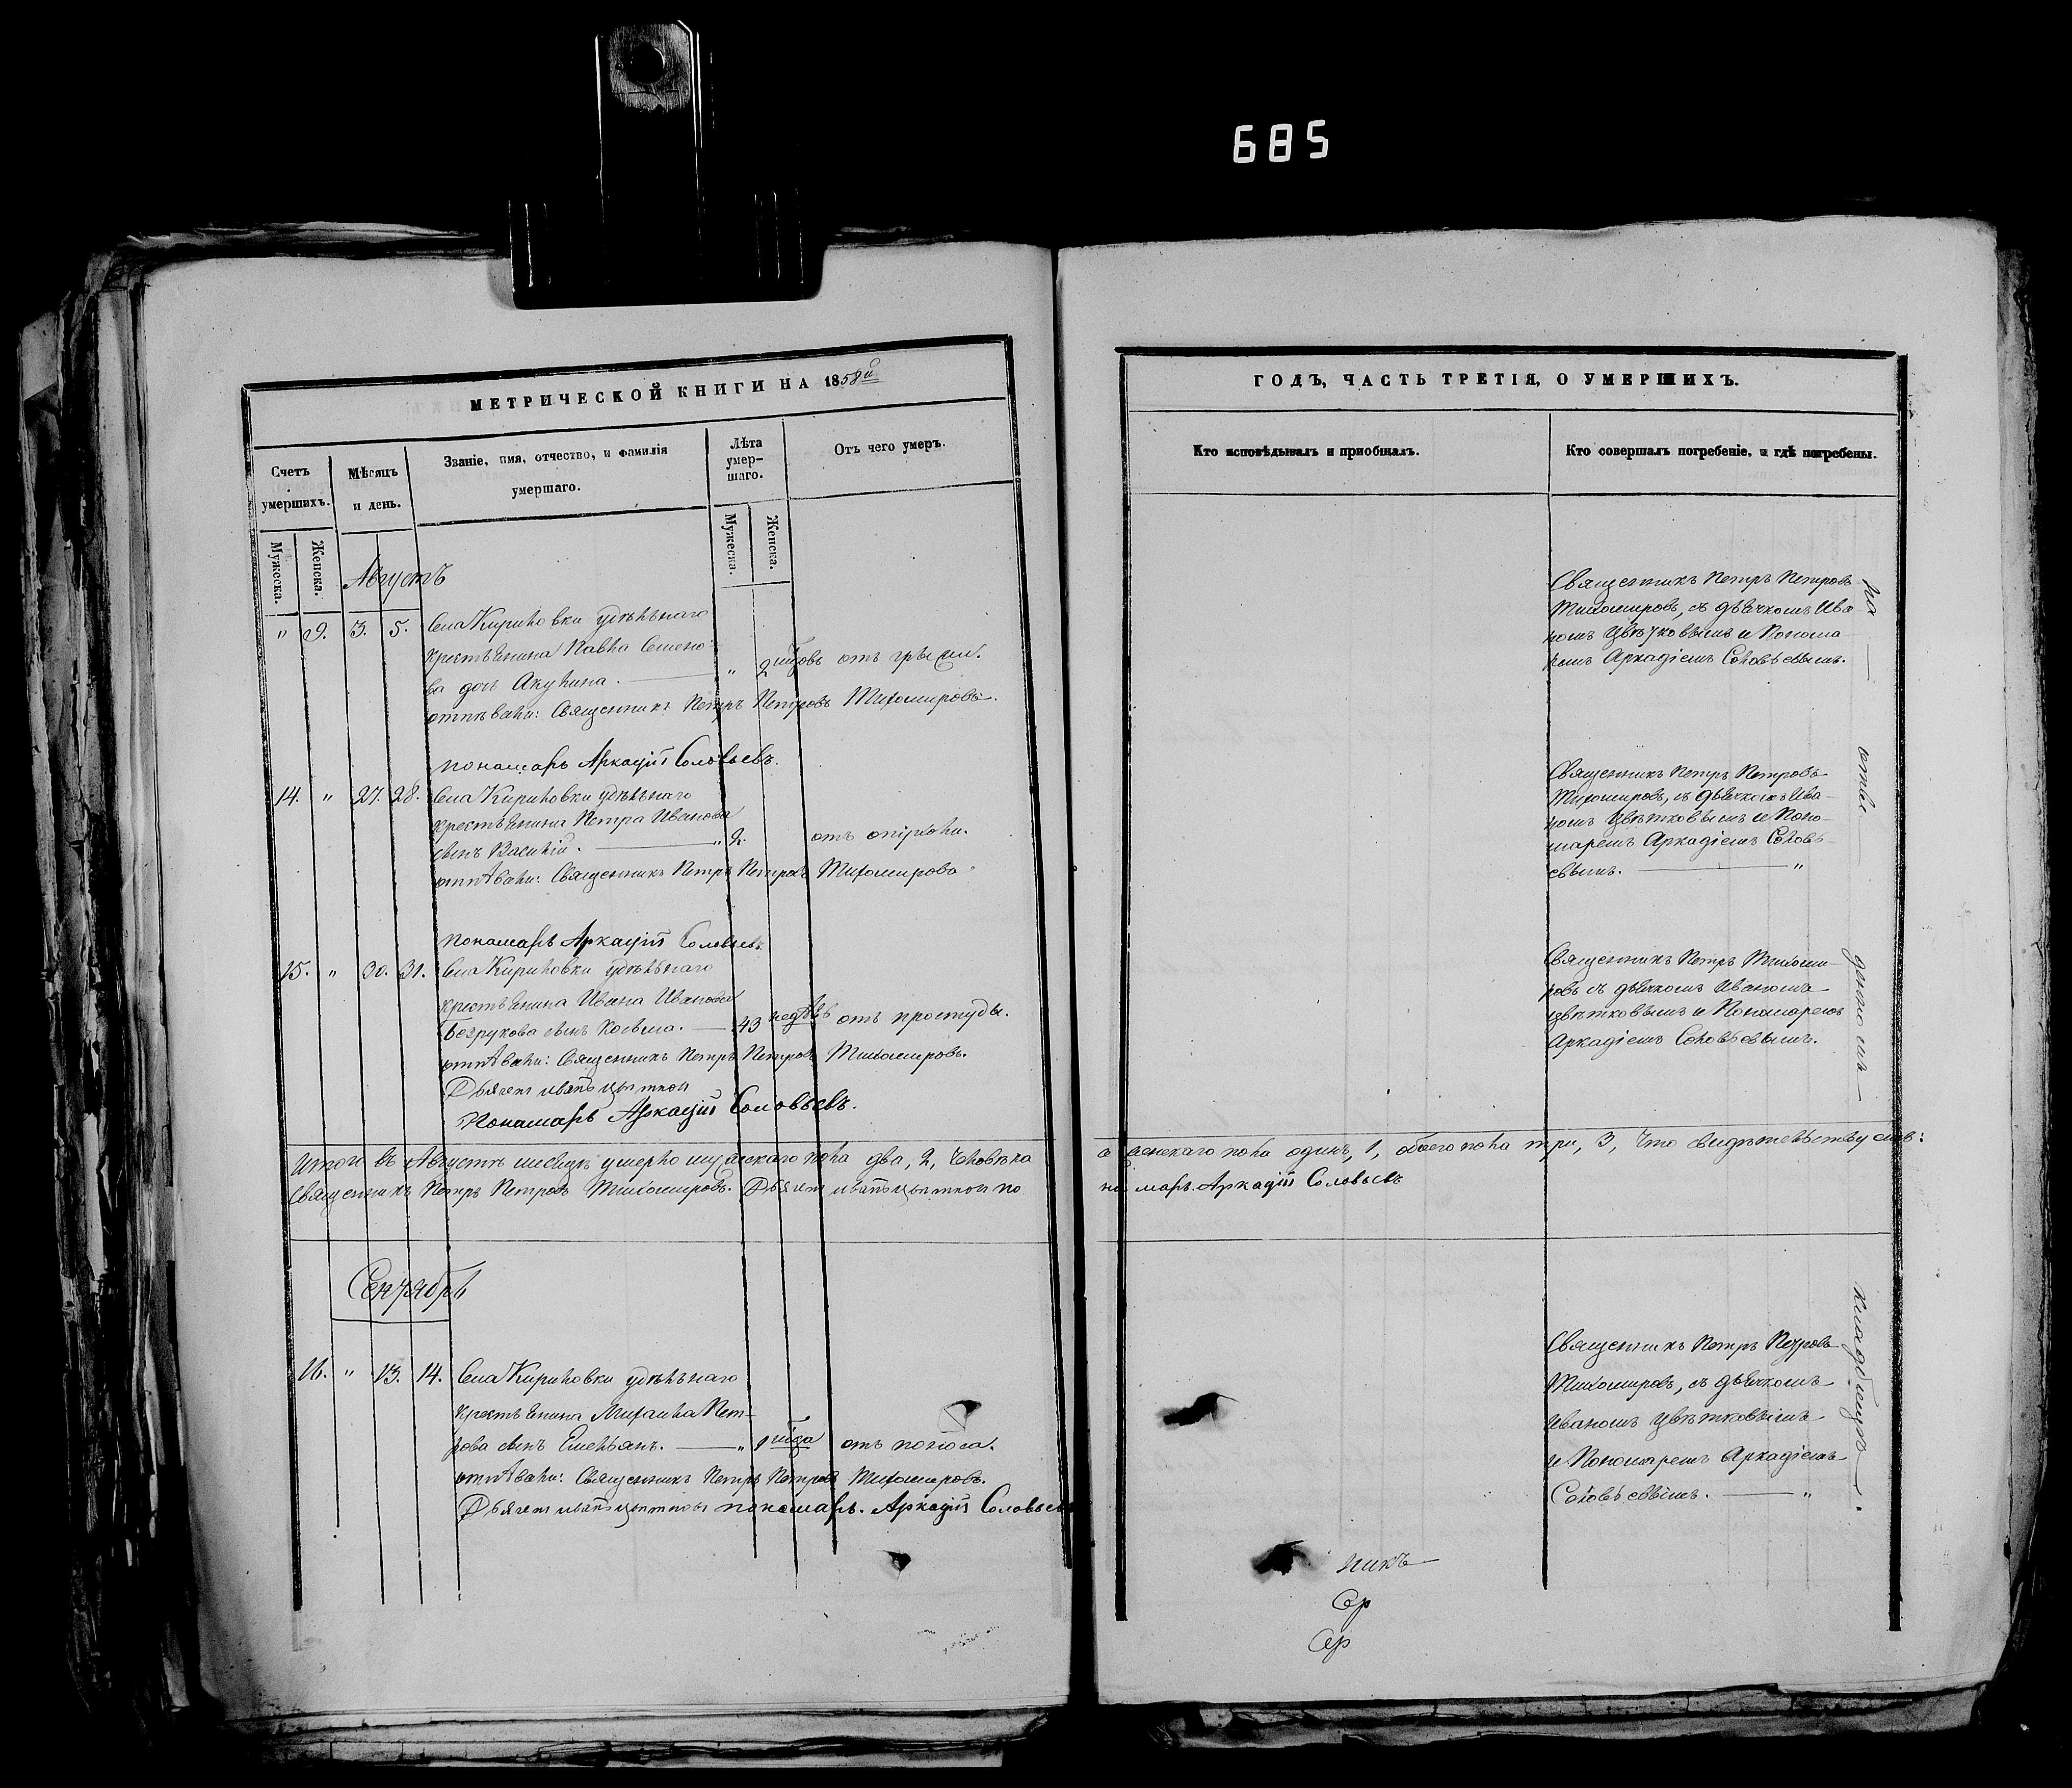 685
МЕТРИЧЕСКОЙ КНИГИ НА 1858й
Счетъ умершихъ.
Мѣсяцъ и день.
Званіе, имя, отчество, и фамилія умершаго.
Лѣта умер-
шаго.
Отъ чего умеръ.
Мужеска.
Женска.
Мужеска.
Женска.
Августъ
" 9. 3. 5. Села Кириловки удѣльнаго
крестьянина Павла Семено-
ва дочь Акулина. — " 2 годовъ отъ грыжи.
отпѣвали: Священникъ Петръ Петровъ Тихомировъ.
пономарь Аркадій Соловьевъ.
14. " 27. 28. Села Кириловки удѣльнаго
крестьянина Петра Иванова
сынъ Василій. — " 2. отъ
отпѣвали: Священникъ Петръ Петровъ Тихомировъ
пономарь Аркадій Соловьевъ.
15. " 30. 31. Села Кириловки удѣльнаго
крестьянина Ивана Иванова
Безрукова сынъ Косьма. — 43 недѣль отъ простуды.
отпѣвали: Священникъ Петръ Петровъ Тихомировъ.
Дьячекъ Иванъ Цвѣтковъ
Пономарь Аркадій Соловьевъ.
Итого въ Августѣ месяцѣ умерло мужескаго пола два, 2, человѣка
Священникъ Петръ Петровъ Тихомировъ. Дьячекъ Иванъ Цвѣтковъ по
Сентябрь
16. " 13. 14. Села Кириловки удѣльнаго
крестьянина Михаила Пет-
рова сынъ Емельянъ. — " 1 года отъ поноса.
отпѣвали: Священникъ Петръ Петровъ Тихомировъ.
Дьячекъ Иванъ Цвѣтковъ пономарь. Аркадій Соловьевъ
ГОДЪ, ЧАСТЬ ТРЕТІЯ, О УМЕРШИХЪ.
Кто исповѣдывалъ и пріобщалъ.
Кто совершалъ погребеніе, и гдѣ погребены.
Священникъ Петръ Петровъ
Тихомировъ, съ дьячкомъ Ива
номъ Цвѣтковымъ и Понома-
ремъ Аркадіемъ Соловьевымъ.
Священникъ Петръ Петровъ
Тихомировъ, съ дьячкомъ Ива-
номъ Цвѣтковымъ и Поно-
маремъ Аркадіемъ Соловь-
евымъ. — "
Священникъ Петръ Тихоми-
ровъ съ дьячкомъ Иваномъ
Цвѣтковымъ и Пономаремъ
Аркадіемъ Соловьевымъ.
а женскаго пола одинъ, 1, обоего пола три, 3, Что свидѣтельствуемъ:
номарь. Аркадій Соловьевъ
Священникъ Петръ Петровъ
Тихомировъ, съ дьячкомъ
Иваномъ Цвѣтковымъ
и Пономаремъ Аркадіемъ
Соловьевымъ. — "
На — отве — денномъ — кладбищѣ — .
никъ
Ср
Ср